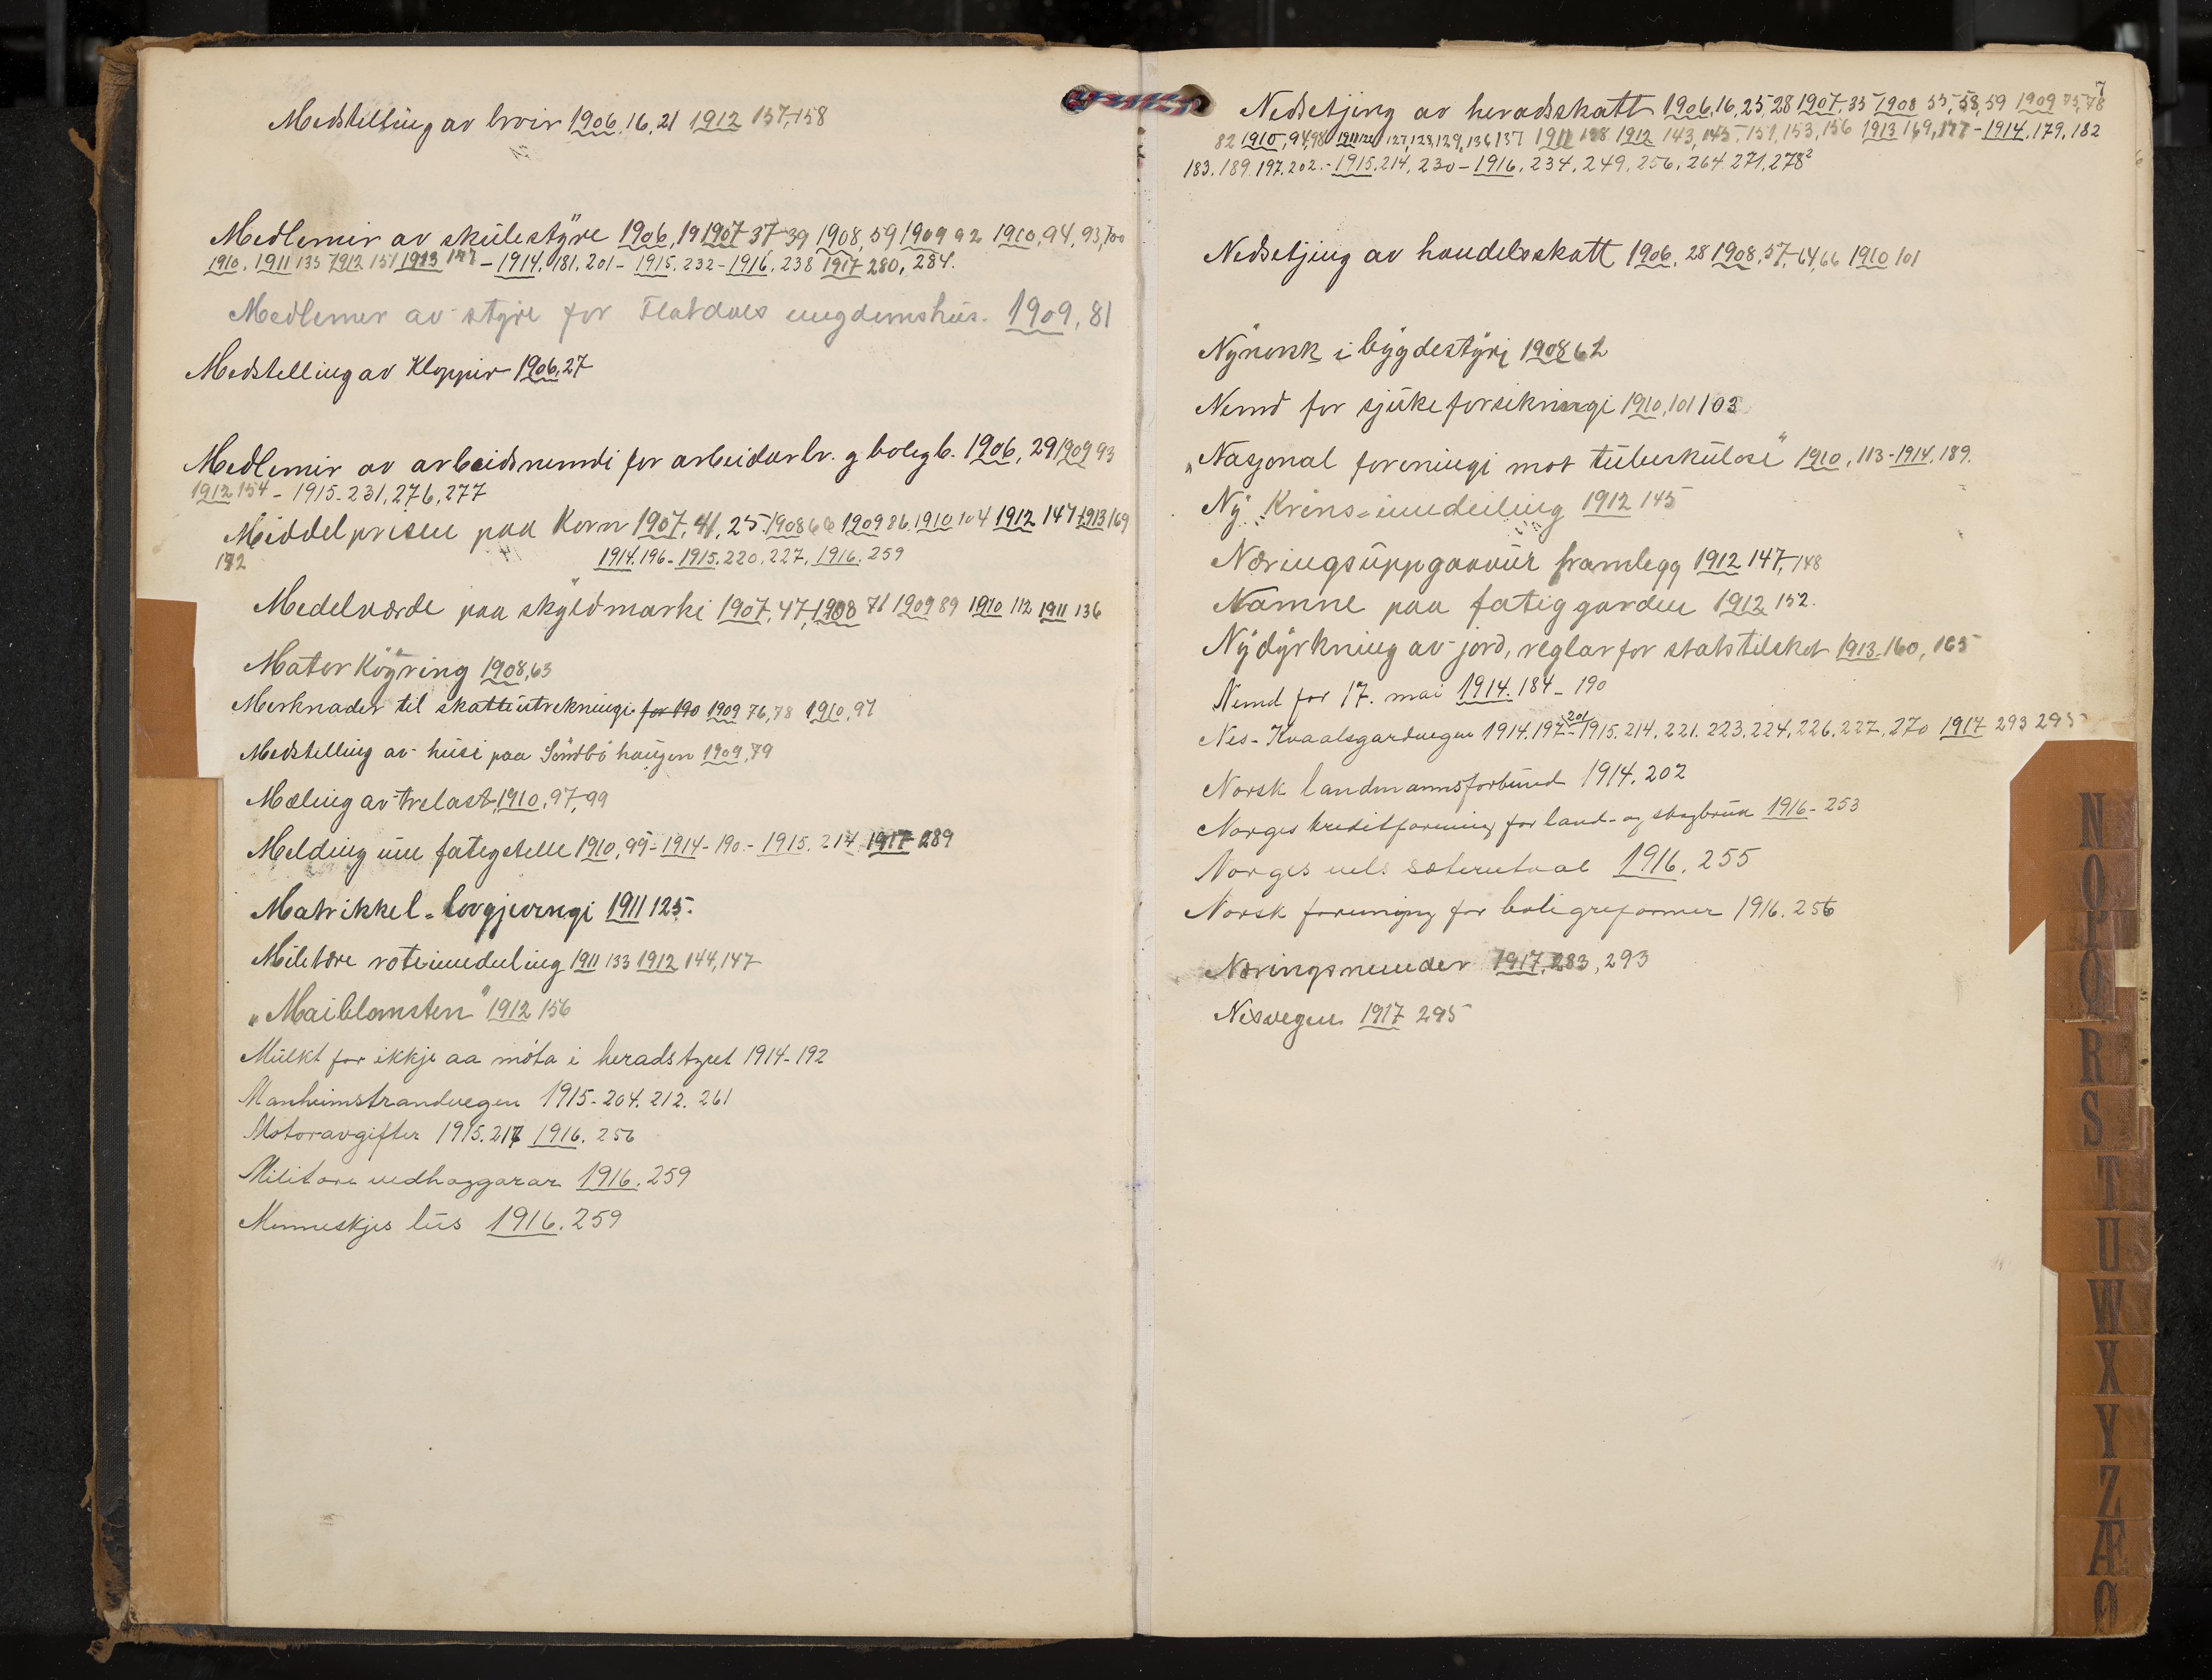 Medstelling av brvir 1906, 16, 21 1912 157, 158
Medlemir av skulestyre 1906, 19 1907 37-39 1908, 59 1909 92 1910, 94, 93, 100
1910. 1911 135 1912 151 1913 177 - 1914. 181. 201 - 1915. 232 - 1916. 238 1917 280, 284.
Medlemer av styre for Flatdals ungdomshus. 1909, 81
Medstelling av Kloppir 1906, 27
Medlemir av arbeidsnemdi for arbeidarbr. g boligb. 1906, 29 1909 93
1912 154 - 1915. 231, 276, 277
Middelprisen paa Korn 1907, 41, 25. 1908 66 1909 86. 1910 104 1912 147 1913 169
172 1914. 196 - 1915. 220. 227. 1916. 259
Medelværde paa skyldmarki 1907, 47, 1908 71 1909 89 1910 112 1911 136
Mator Köyring 1908, 63
Merknader til skatteutrekningi for 190 1909 76, 78 1910, 97
Medstelling av husi paa Sundbö haugen 1909, 79
Mæling av trelast, 1910, 97, 99
Melding um fatigstelle 1910, 99 - 1914 - 190. - 1915. 214 1917 289
Matrikkel-lovgjevingi 1911 125.
Militære roteinndeling 1911 133 1912 144, 147
„Maiblomsten" 1912 156
Mulkt for ikkje aa móta i heradstyret 1914 - 192
Manheimstrandvegen 1915 - 204. 212. 261
Motoravgifter 1915. 217 1916. 256
Militære vedhoggarar 1916. 259
Menneskjes liis 1916. 259
7
Nedsetjing av heradsskatt 1906, 16, 25, 28 1907, 35 1908 55, 58, 59 1909 75, 78
82 1910, 94, 98 1911 122 127, 128, 129, 136, 137 1911 138 1912 143, 145, 151, 153, 156 1913 169, 177 - 1914. 179. 182
183. 189. 197. 202. - 1915. 214. 230 - 1916. 234. 249. 256. 264. 271. 278²
Nedsetjing av handelsskatt 1906. 28 1908, 57, 64, 66 1910 101
Nynorsk i bygdestyri 1908 62
Nemd for sjukeforsikringi 1910, 101 103
„Nasjonal foreningi mot tuberkulose" 1910, 113 - 1914. 189.
Ny Krins-inndeiling 1912 145
Næringsuppgaavur framlegg 1912 147, 148
Namne paa fatiggarden 1912 152.
Nydyrkning av jord, reglar for statstilskot 1913. 160, 165
Nemd for 17. mai 1914. 184 - 190
Nes-Kvaalsgardvegen 1914. 197 - 201 1915. 214. 221. 223. 224. 226. 227. 270 1917 293 295
Norsk landmannsforbund 1914. 202
Norges kreditforening for land- og skogbruk 1916 - 253
Norges vels sæterutval 1916. 255
Norsk forening for boligreformer 1916. 256
Næringsnemder 1917, 283, 293
Nesvegen 1917 295
N
O
P
Q
R
S
T
U
W
X
Y
Z
Æ
Ø